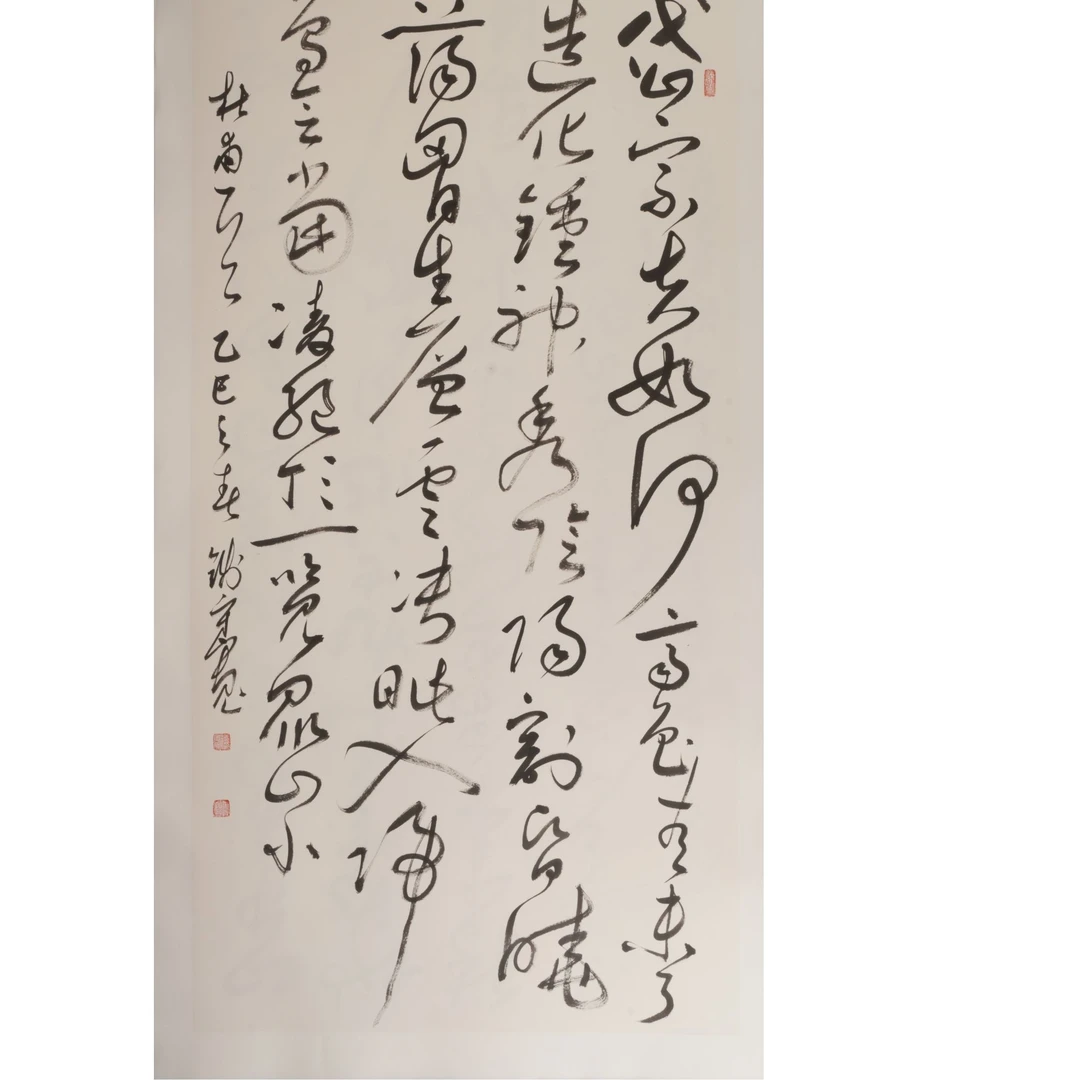 岱宗夫如何齊魯青未了
造化鍾神秀陰陽割昏曉
蕩胷生層雲決眦入歸
鳥會當凌絕頂一覽眾山小
杜甫 乙巳之春